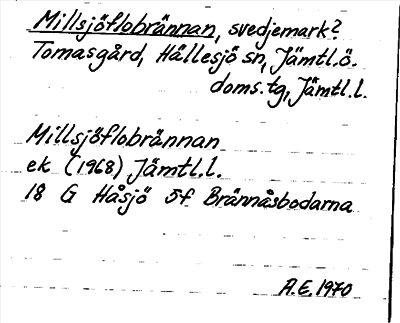 Millsjöflobrännan, svedjemark?
Tomasgård, Hällesjö sn, Jämtl.ö.
doms.tg, Jämtl.l.
Millsjöflobrännan
ek (1968) Jämtl.l.
18 G Håsjö 5f Brännåsbodarna
A.E. 1970